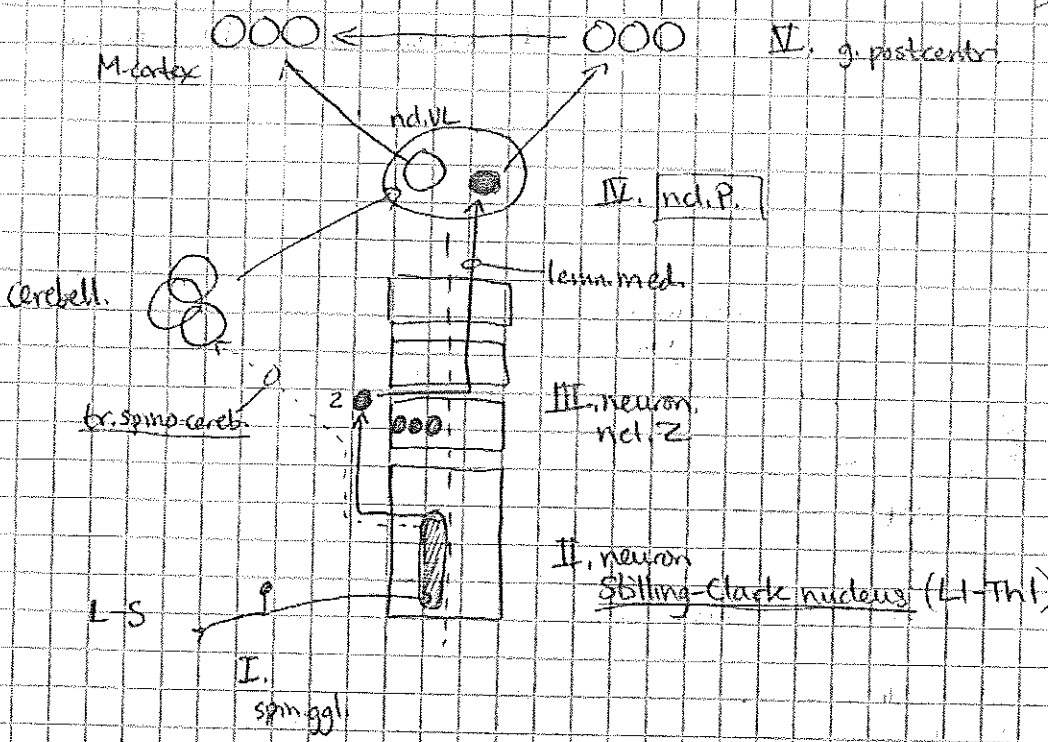 V. g. postcentr.
M-cortex
nd.VL
IV. nd.P.
lemn.med.
cerebell.
2
tr.spino-cereb.
III. neuron.
ncl.Z
II. neuron
Stilling-Clark nucleus (L1-Th1)
L-S
I.
spin.ggl.